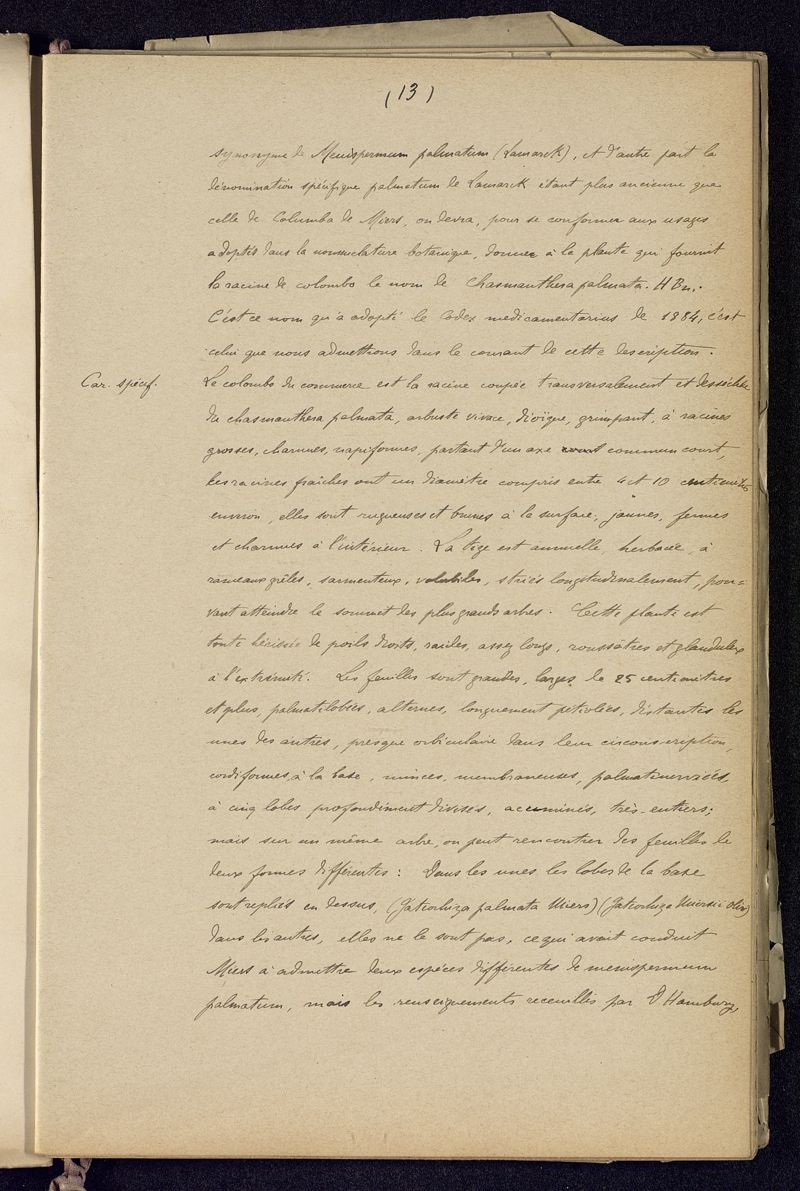 (13)
synonyme de Menispermum palmatum (Lamarck), et d'autre part la
dénomination spécifique palmatum de Lamarck étant plus ancienne que
celle de Columba de Miers, on devra, pour se conformer aux usages
adoptés dans la nomenclature botanique, donner à la plante qui fournit
la racine de colombo le nom de Chasmanthera palmata. H Bn.
C'est ce nom qu'a adopté le Codex medicamentarius de 1884, c'est
celui que nous admettrons dans le courant de cette description.
Car. spécif.
Le colombo du commerce est la racine coupée transversalement et desséchée
du chasmanthera palmata, arbuste vivace, dioïque, grimpant, à racines
grosses, charnues, napiformes, partant d'un axe commun court,
Les racines fraîches ont un diamètre compris entre 4 et 10 centimètres
environ, elles sont rugueuses et brunes à la surface, jaunes, fermes
et charnues à l'intérieur. La tige est annuelle, herbacée, à
rameaux grêles, sarmenteux, volubiles, striés longitudinalement, pou-
vant atteindre le sommet des plus grands arbres. Cette plante est
toute hérissée de poils droits, raides, assez longs, roussâtres et glanduleux
à l'extrémité. Les feuilles sont grandes, larges de 25 centimètres
et plus, palmatilobées, alternes, longuement pétiolées, distantes les
unes des autres, presque orbiculaire dans leur circonscription,
cordiformes, à la base, minces, membraneuses, palmatinerviées,
à cinq lobes profondément divisés, acuminés, très-entiers;
mais sur un même arbre, on peut rencontrer des feuilles de
deux formes différentes: Dans les unes, les lobes de la base
sont repliés en dessus, (Jateorhiza palmata Miers) (Jateorhiza Miersii Oliv)
dans les autres, elles ne le sont pas, ce qui avait conduit
Miers à admettre deux espèces différentes de menispermum
palmatum, mais les renseignements recueillis par D Hambury,